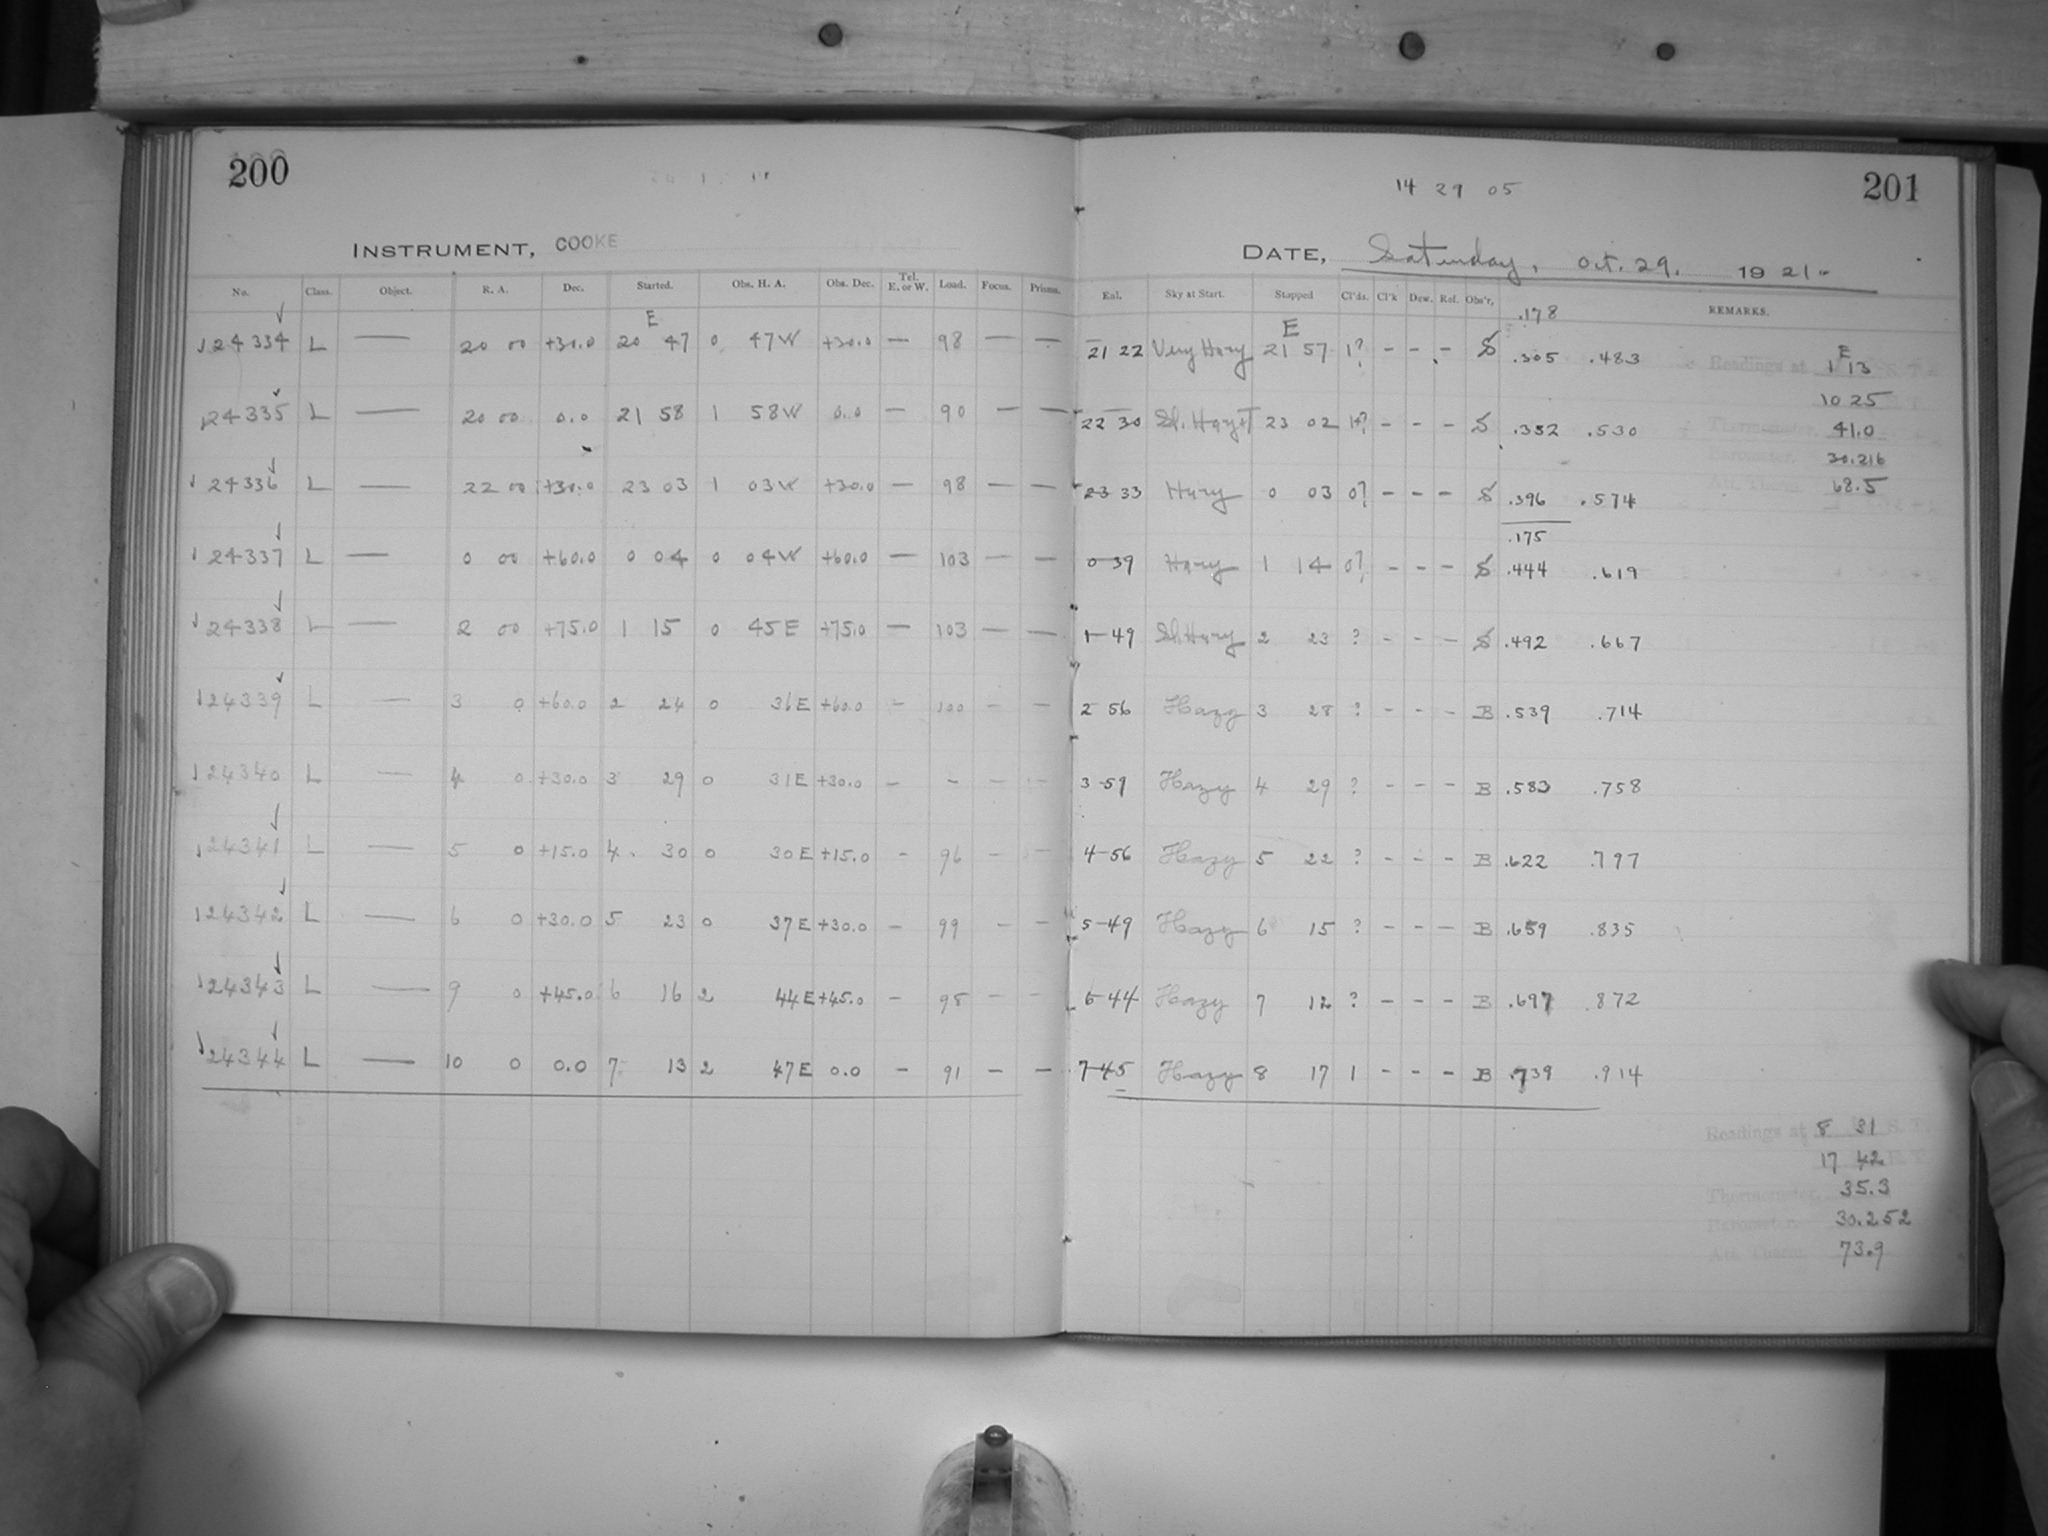 200
INSTRUMENT, COOKE
No. Class. Object. R. A. Dec. Started. Obs. H. A. Obs. Dec. Tel. E. or W. Load. Focus. Prisms.
E
24334 L — 20 00 +30.0 20 47 0 47W +30.0 — 98 — —
24335 L — 20 00 0.0 21 58 1 58W 0.0 — 90 — —
24336 L — 22 00 +30.0 23 03 1 03W +30.0 — 98 — —
24337 L — 0 00 +60.0 0 04 0 04W +60.0 — 103 — —
24338 L — 2 00 +75.0 1 15 0 45E +75.0 — 103 — —
24339 L — 3 0 +60.0 2 24 0 36E +60.0 — 100 — —
24340 L — 4 0 +30.0 3 29 0 31E +30.0 — — — —
24341 L — 5 0 +15.0 4 30 0 30E +15.0 — 96 — —
24342 L — 6 0 +30.0 5 23 0 37E +30.0 — 99 — —
24343 L — 9 0 +45.0 6 16 2 44E +45.0 — 98 — —
24344 L — 10 0 0.0 7 13 2 47E 0.0 — 91 — —
14 29 05
201
DATE, Saturday, Oct. 29. 1921.
Eul. Sky at Start. Stopped Cl'ds. Cl'k Dew. Rof. Obs'r, REMARKS.
.178
E
21 22 Very Hazy 21 57 1? - - - S .305 .483
22 30 Sl. Hazy 23 02 1? - - - S .352 .530
23 33 Hazy 0 03 0? - - - S .396 .574
.175
0 39 Hazy 1 14 0? - - - S .444 .619
1-49 Sl. Hazy 2 23 ? - - - S .492 .667
2 56 Hazy 3 28 ? - - - B .539 .714
3-59 Hazy 4 29 ? - - - B .583 .758
4-56 Hazy 5 22 ? - - - B .622 .797
5-49 Hazy 6 15 ? - - - B .659 .835
6-44 Hazy 7 12 ? - - - B .697 .872
7-45 Hazy 8 17 1 - - - B .739 .914
E
Readings at 1 13 S. T.
10 25
Thermometer, 41.0
Barometer, 30.216
68.5
Readings at 8 31 S. T.
17 42
Thermometer, 35.3
Barometer, 30.252
Att. Therm. 73.9